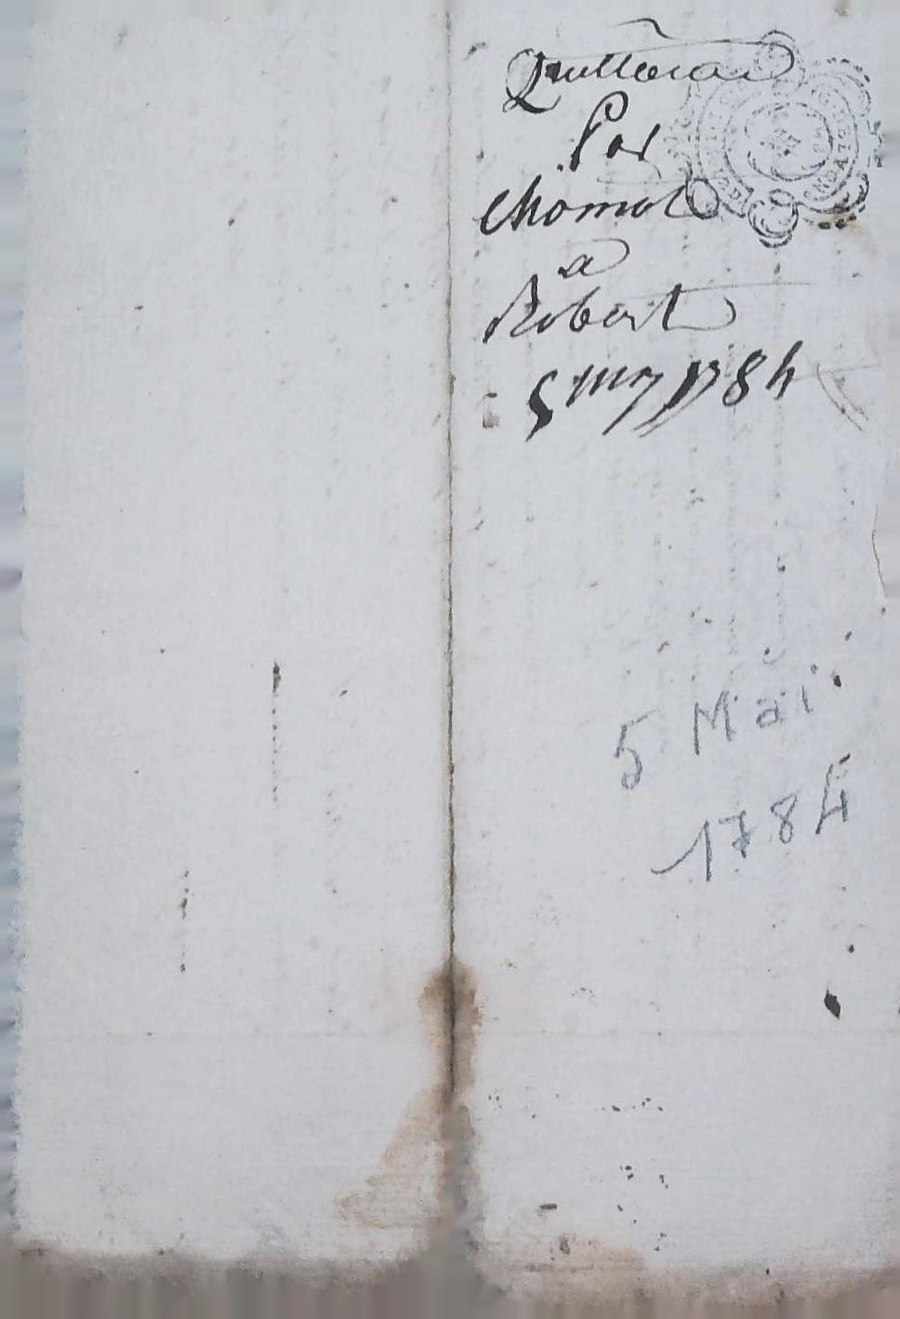 Quittance
Par
Chomot
a
Robert
5 may 1784
5 Mai
1784